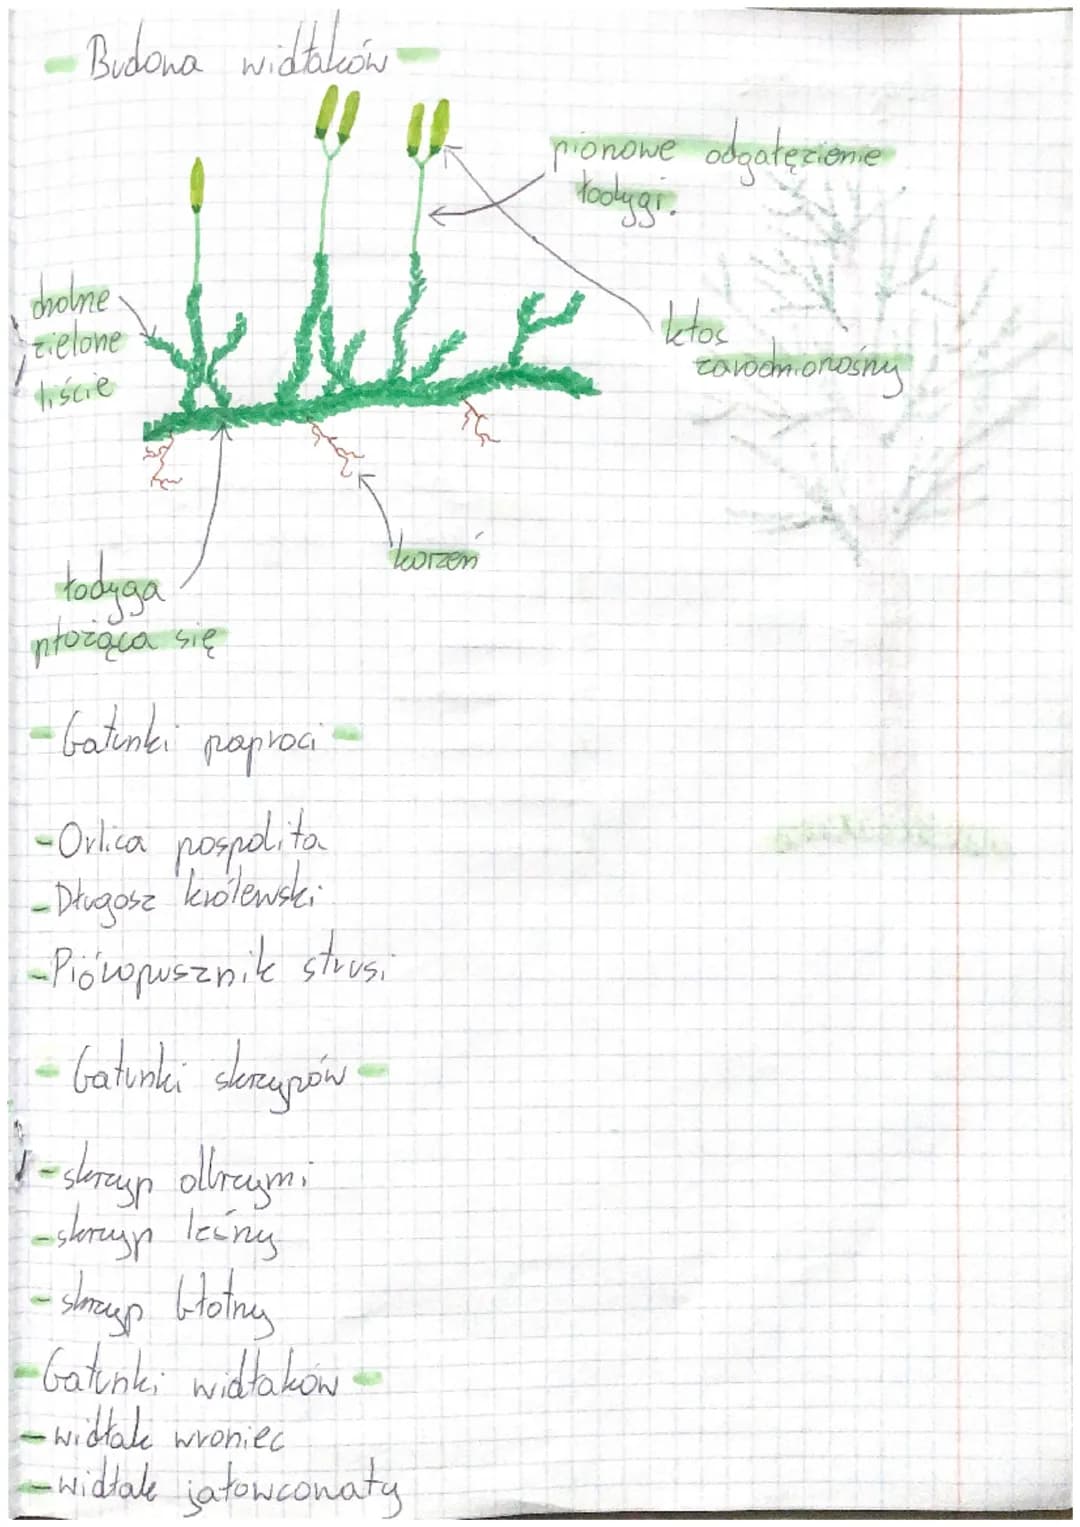 - Budowa widłaków -
pionowe odgałęzienie
łodygi.
drobne
zielone
liście
kłos
zarodnionośny
korzeń
łodyga
płożąca się
- Gatunki paproci -
- Orlica pospolita
- Długosz królewski
- Pióropusznik strusi
- Gatunki skrzypów -
- skrzyp olbrzymi
- skrzyp leśny
- skrzyp błotny
- Gatunki widłaków -
- widłak wroniec
- widłak jałowcowaty